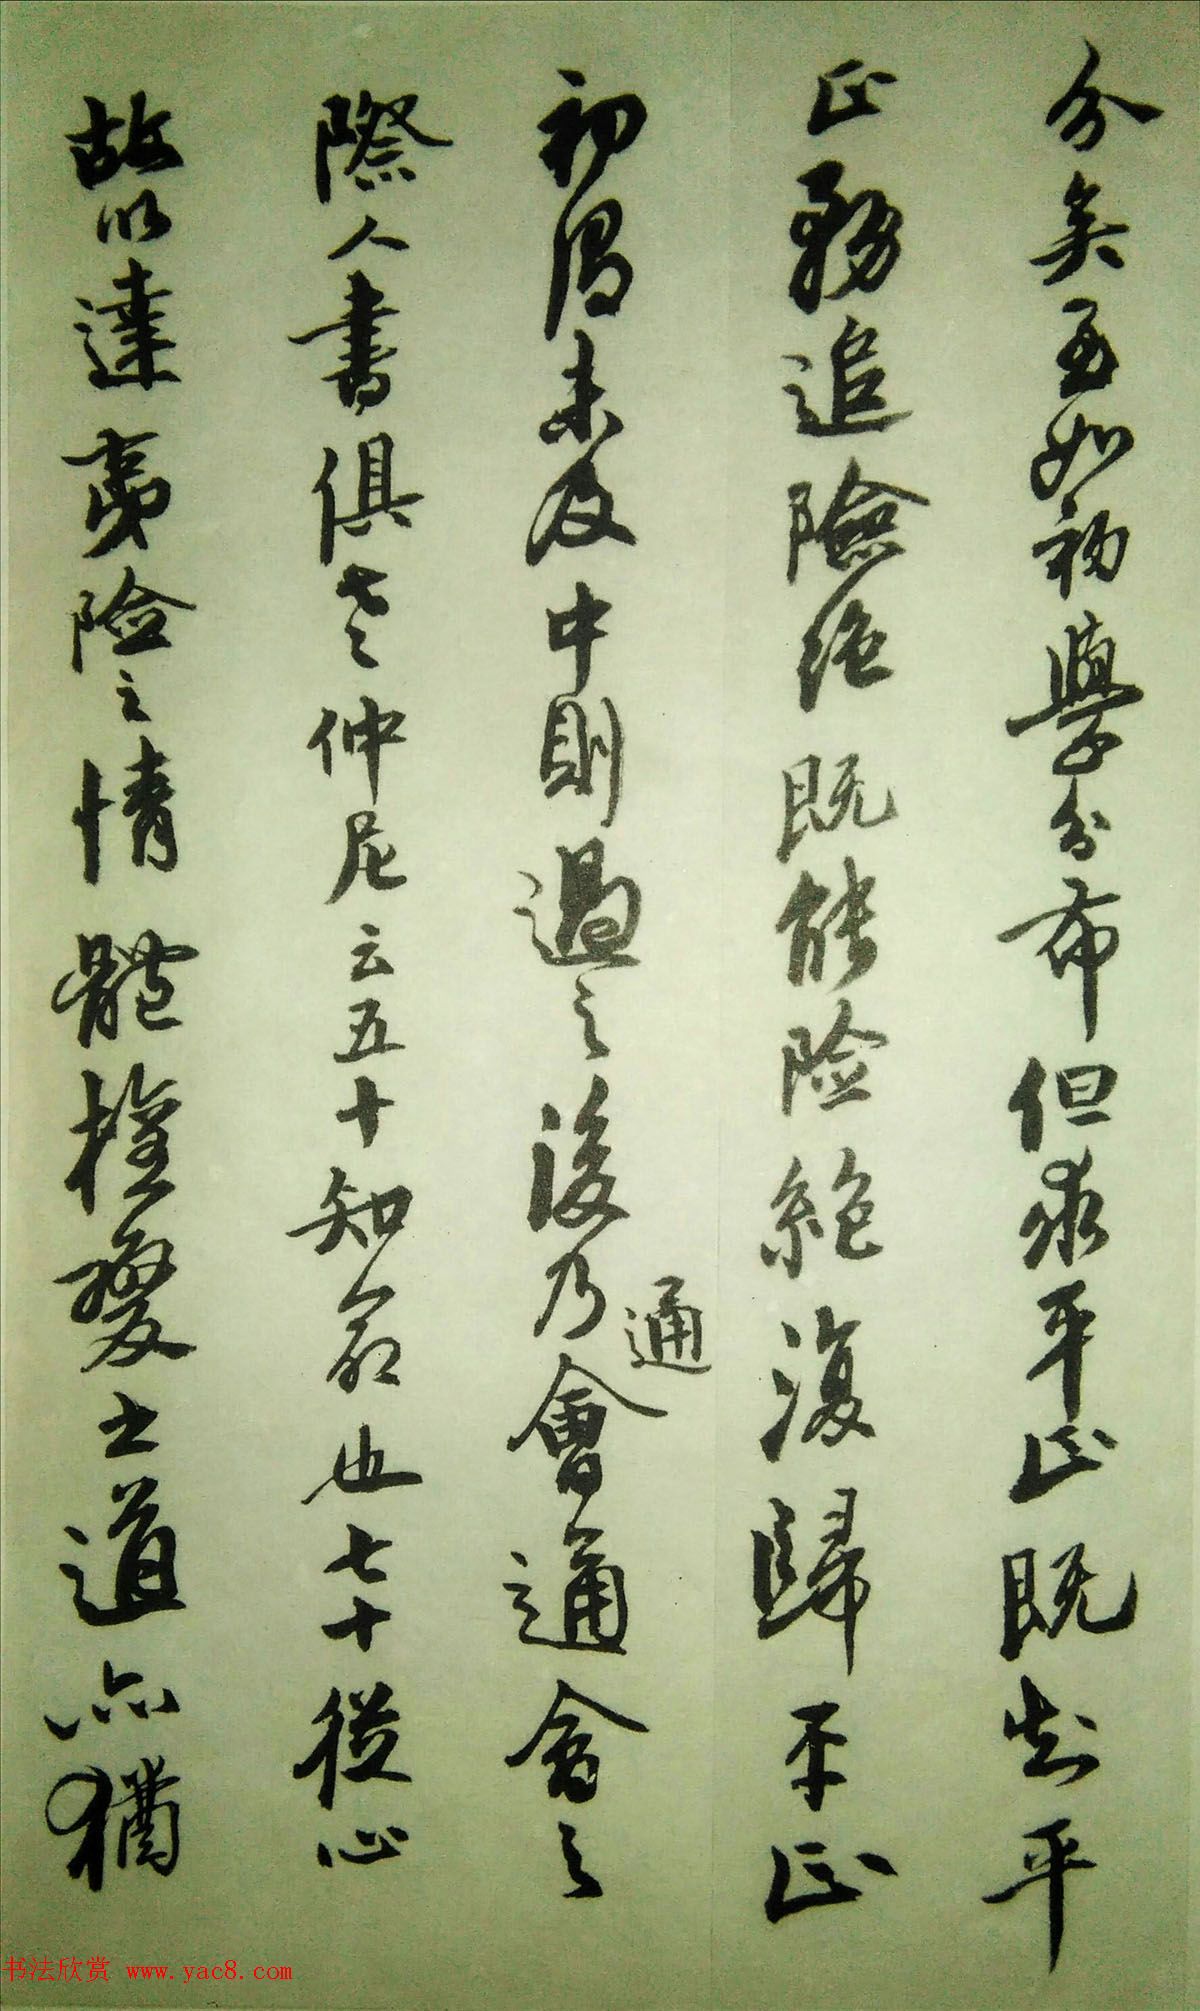 分矣至如初學分布但求平正既知平
正務追險絕既能险絕復歸平正
初謂未及中則過之後乃通會通會之
際人書俱老仲尼云五十知命也七十從心
故以達夷險之情體權變之道亦猶
書法欣赏 www.yac8.com